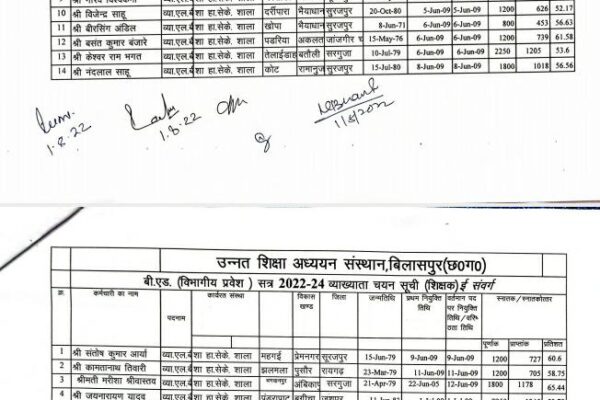 10 श्री विजेन्द्र साहू व्या.एल.बी शा हा.से.के. शाला दर्रीपारा भैयाथान सूरजपुर 20-Oct-80 5-Jun-09 5-Jun-09 1200 626 52.17
11 श्री बीरसिंग अंडिल व्या.एल.बी शा हा.से.के. शाला खोपा भैयाथान सूरजपुर 8-Jun-71 6-Jun-09 6-Jun-09 800 453 56.63
12 श्री बसंत कुमार बंजारे व्या.एल.बी शा हा.से.के. शाला पडरिया अकलत जांजगीर च 15-May-76 6-Jun-09 6-Jun-09 1200 739 61.58
13 श्री केश्वर राम भगत व्या.एल.बी शा हा.से.के. शाला तेलाईडाड बतौली सरगुजा 10-Jul-79 6-Jun-09 6-Jun-09 2250 1205 53.6
14 श्री नंदलाल साहू व्या.एल.बी शा हा.से.के. शाला कोट रामानुज सूरजपुर 15-Jul-80 8-Jun-09 8-Jun-09 1800 1018 56.56
1.8.22 1.8.22
उन्नत शिक्षा अध्ययन संस्थान,बिलासपुर(छ0ग0)
बी.एड. (विभागीय प्रवेश ) सत्र 2022-24 व्याख्याता चयन सूची (शिक्षक)ई संवर्ग
क्र. कर्मचारी का नाम पदनाम कार्यरत संस्था विकास खण्ड जिला जन्मतिथि प्रथम नियुक्ति तिथि वर्तमान पद पर नियुक्ति तिथि/ स्नातक /स्नातकोत्तर
पूर्णांक प्राप्तांक प्रतिशत
1 श्री संतोष कुमार आर्या व्या.एल.बी शा हा.से.के. शाला महगई प्रेमनगर सूरजपुर 15-Jun-79 9-Jun-09 9-Jun-09 1200 727 60.6
2 श्री कामतानाथ तिवारी व्या.एल.बी शा हा.से.के. शाला झलमला पुसौर रायगढ़ 23-Mar-79 11-Jun-09 11-Jun-09 1200 705 58.75
3 श्रीमती मरीशा श्रीवास्तव व्या.एल.बी शा हा.से.के. शाला अंबिकापु सरगुजा 21-Apr-79 22-Jun-05 12-Jun-09 1800 1178 65.44
4 श्री जयनारायण यादव व्या.एल.बी शा हा.से.के. शाला पंडरापाट बगीचा जशपुर